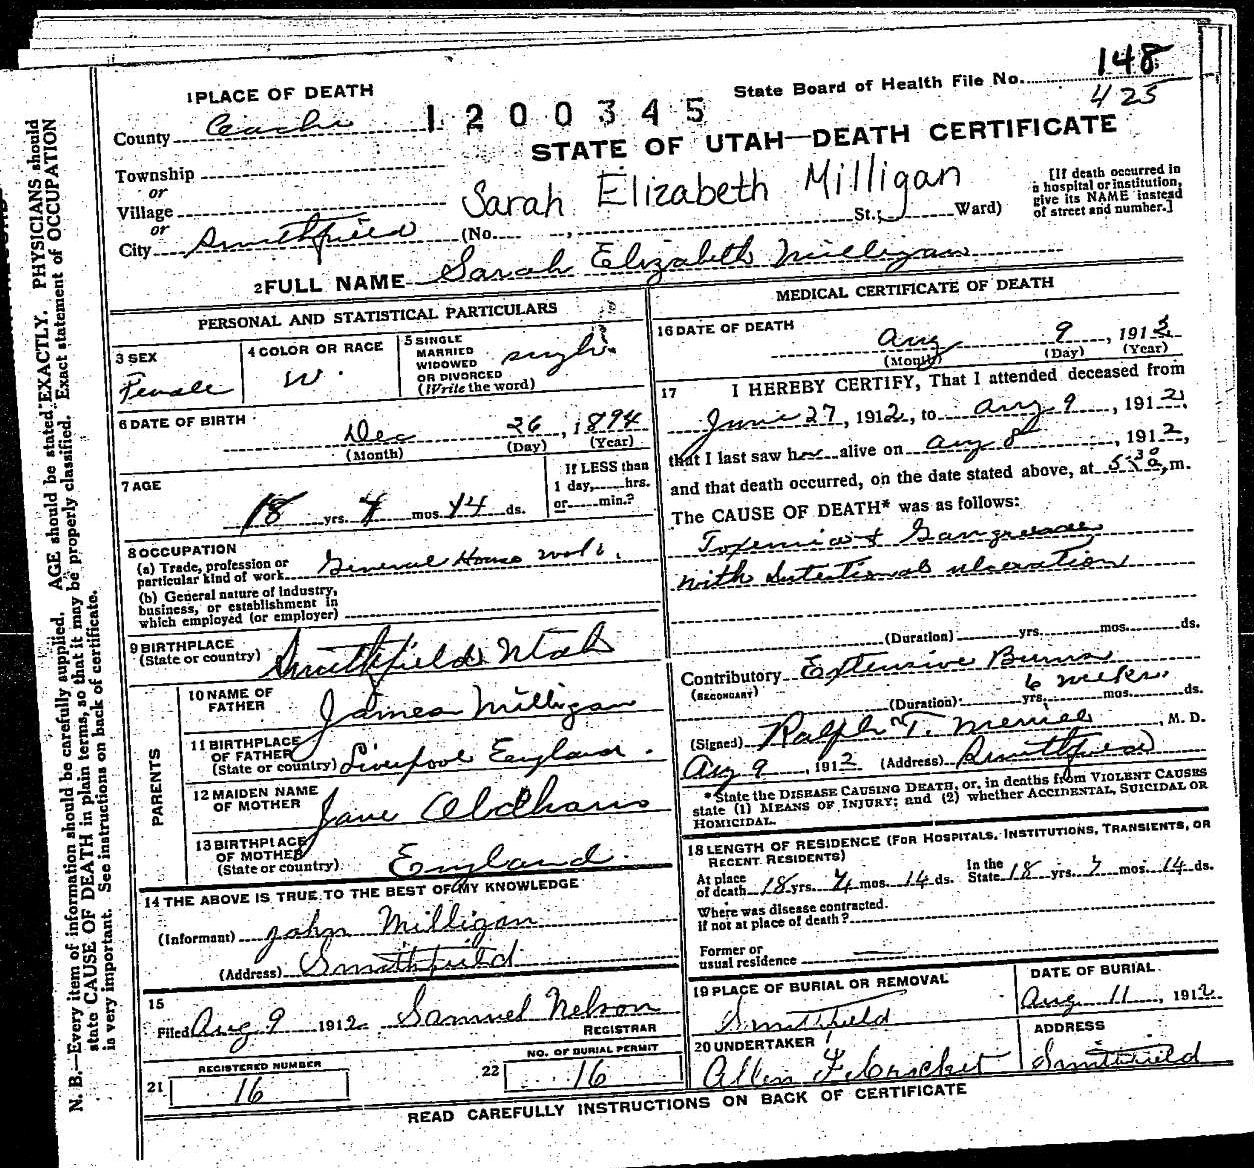 148
State Board of Health File No.
425
1 PLACE OF DEATH
1200345
County Cache
STATE OF UTAH—DEATH CERTIFICATE
Township
or
Village
or
City Smithfield
Sarah Elizabeth Milligan
(No. , St.; Ward)
[If death occurred in
a hospital or institution,
give its NAME instead
of street and number.]
2 FULL NAME Sarah Elizabeth Milligan
PERSONAL AND STATISTICAL PARTICULARS
3 SEX
Female
4 COLOR OR RACE
W.
5 SINGLE
MARRIED
WIDOWED
OR DIVORCED
(Write the word)
single
6 DATE OF BIRTH
Dec 26, 1894
(Month) (Day) (Year)
7 AGE
18 yrs. 7 mos. 14 ds.
If LESS than
1 day, hrs.
or min.?
8 OCCUPATION
(a) Trade, profession or
particular kind of work General House work.
(b) General nature of industry,
business, or establishment in
which employed (or employer)
9 BIRTHPLACE
(State or country) Smithfield Utah
PARENTS
10 NAME OF
FATHER James Milligan
11 BIRTHPLACE
OF FATHER
(State or country) Liverpool England.
12 MAIDEN NAME
OF MOTHER Jane
13 BIRTHPLACE
OF MOTHER
(State or country) England.
14 THE ABOVE IS TRUE TO THE BEST OF MY KNOWLEDGE
(Informant) John Milligan
(Address) Smithfield
15
Filed Aug 9 1912 Samuel Nelson
REGISTRAR
21 REGISTERED NUMBER
16
22 NO. OF BURIAL PERMIT
16
MEDICAL CERTIFICATE OF DEATH
16 DATE OF DEATH
Aug 9, 1912
(Month) (Day) (Year)
17 I HEREBY CERTIFY, That I attended deceased from
June 27, 1912, to Aug 9, 1912,
that I last saw her alive on Aug 8, 1912,
and that death occurred, on the date stated above, at 5:30 a, m.
The CAUSE OF DEATH* was as follows:
Toxemia & Gangrene
with Intestional ulceration
(Duration) yrs. mos. ds.
Contributory Extensive Burns
(SECONDARY)
6 weeks.
(Duration) yrs. mos. ds.
(Signed) Ralph T. Merrill, M. D.
Aug 9, 1912 (Address) Smithfield
*State the DISEASE CAUSING DEATH, or, in deaths from VIOLENT CAUSES
state (1) MEANS OF INJURY; and (2) whether ACCIDENTAL, SUICIDAL OR
HOMICIDAL.
18 LENGTH OF RESIDENCE (FOR HOSPITALS, INSTITUTIONS, TRANSIENTS, OR
RECENT RESIDENTS)
At place
of death 18 yrs. 7 mos. 14 ds.
In the
State 18 yrs. 7 mos. 14 ds.
Where was disease contracted.
if not at place of death?
Former or
usual residence
19 PLACE OF BURIAL OR REMOVAL
Smithfield
DATE OF BURIAL
Aug 11, 1912
20 UNDERTAKER
Allen
ADDRESS
Smithfield
READ CAREFULLY INSTRUCTIONS ON BACK OF CERTIFICATE
N. B.—Every item of information should be carefully supplied. AGE should be stated EXACTLY. PHYSICIANS should
state CAUSE OF DEATH in plain terms, so that it may be properly classified. Exact statement of OCCUPATION
is very important. See instructions on back of certificate.